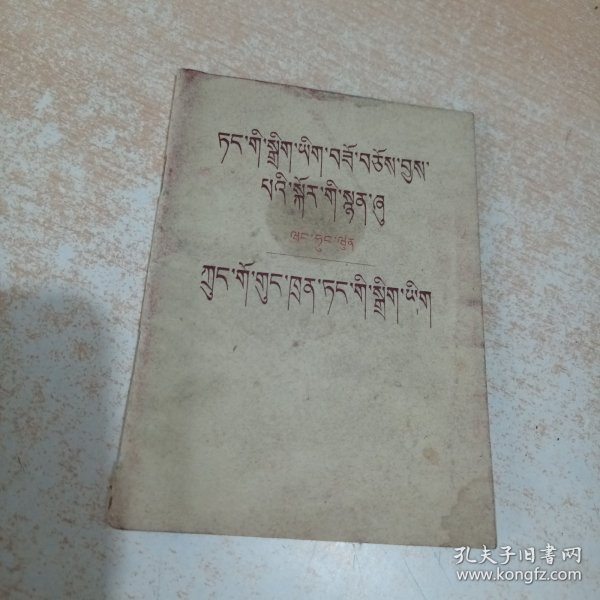 ཏང་གི་སྒྲིག་ཡིག་བཟོ་བཅོས་བྱས་
པའི་སྐོར་གི་སྙན་ཞུ
ཝང་ཧུང་ཝུན
ཀྲུང་གོ་གུང་ཁྲན་ཏང་གི་སྒྲིག་ཡིག
孔夫子旧书网
www.kongfz.com